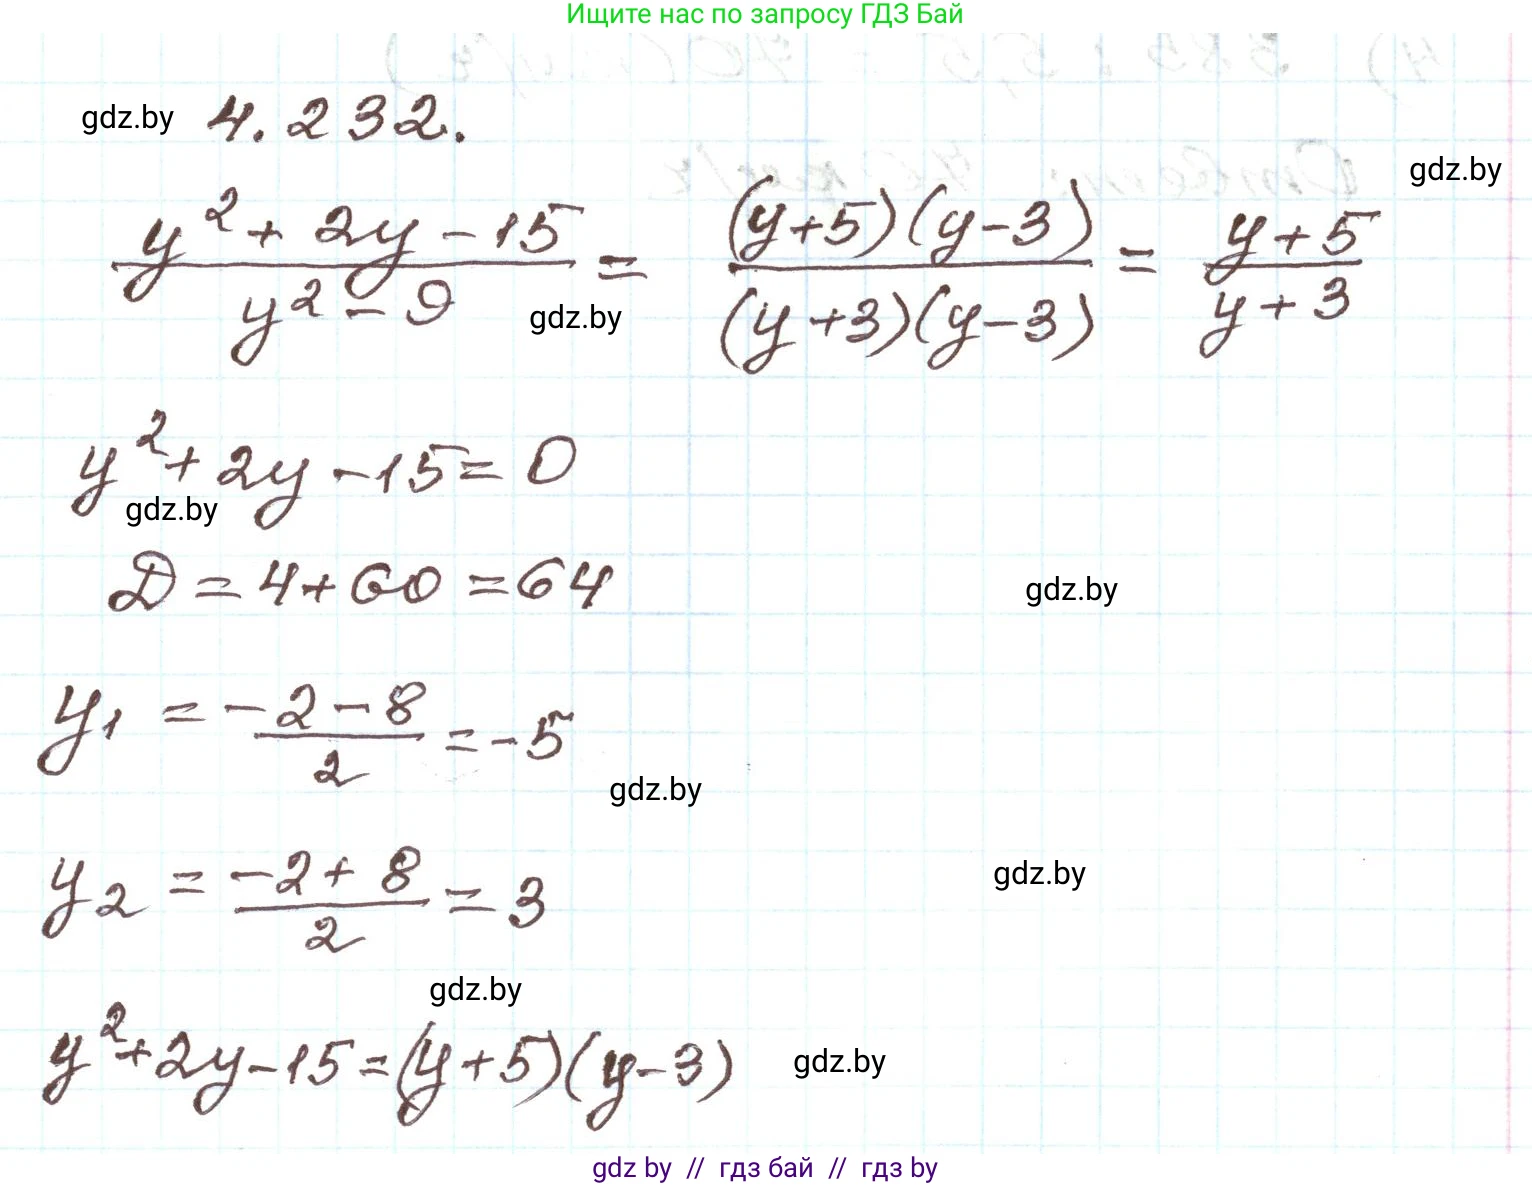 Ищите нас по запросу ГДЗ Бай
gdz.by 4.232.
gdz.by
(y² + 2y - 15)/(y² - 9) = ((y+5)(y-3))/((y+3)(y-3)) = (y+5)/(y+3)
gdz.by
y² + 2y - 15 = 0
gdz.by
D = 4 + 60 = 64
gdz.by
y₁ = (-2 - 8)/2 = -5
gdz.by
y₂ = (-2 + 8)/2 = 3
gdz.by
gdz.by
y² + 2y - 15 = (y+5)(y-3)
gdz.by
gdz by // гдз бай // гдз by